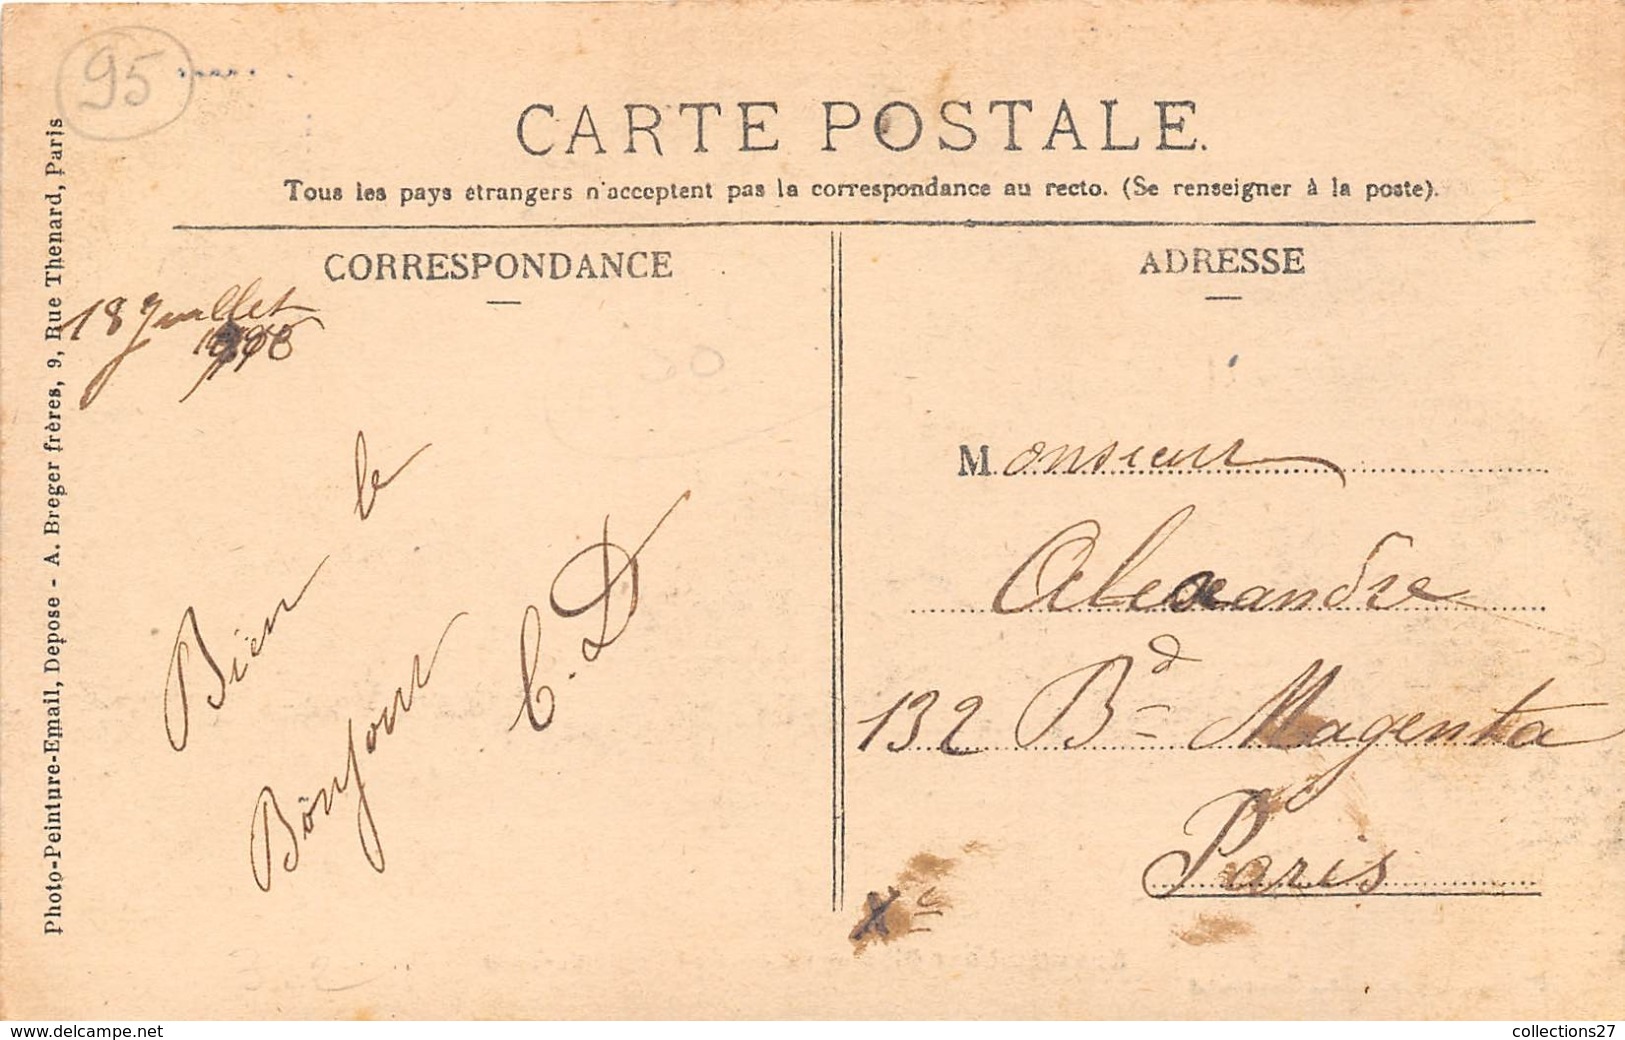 95
CARTE POSTALE.
Tous les pays étrangers n'acceptent pas la correspondance au recto. (Se renseigner à la poste).
Photo-Peinture-Email, Depose - A. Breger frères, 9, Rue Thenard, Paris
CORRESPONDANCE
18 Juillet
Bien le
Bonjour
C. D
ADRESSE
Monsieur
Alexandre
132 Bd Magenta
Paris
Xe
www.delcampe.net
collections27